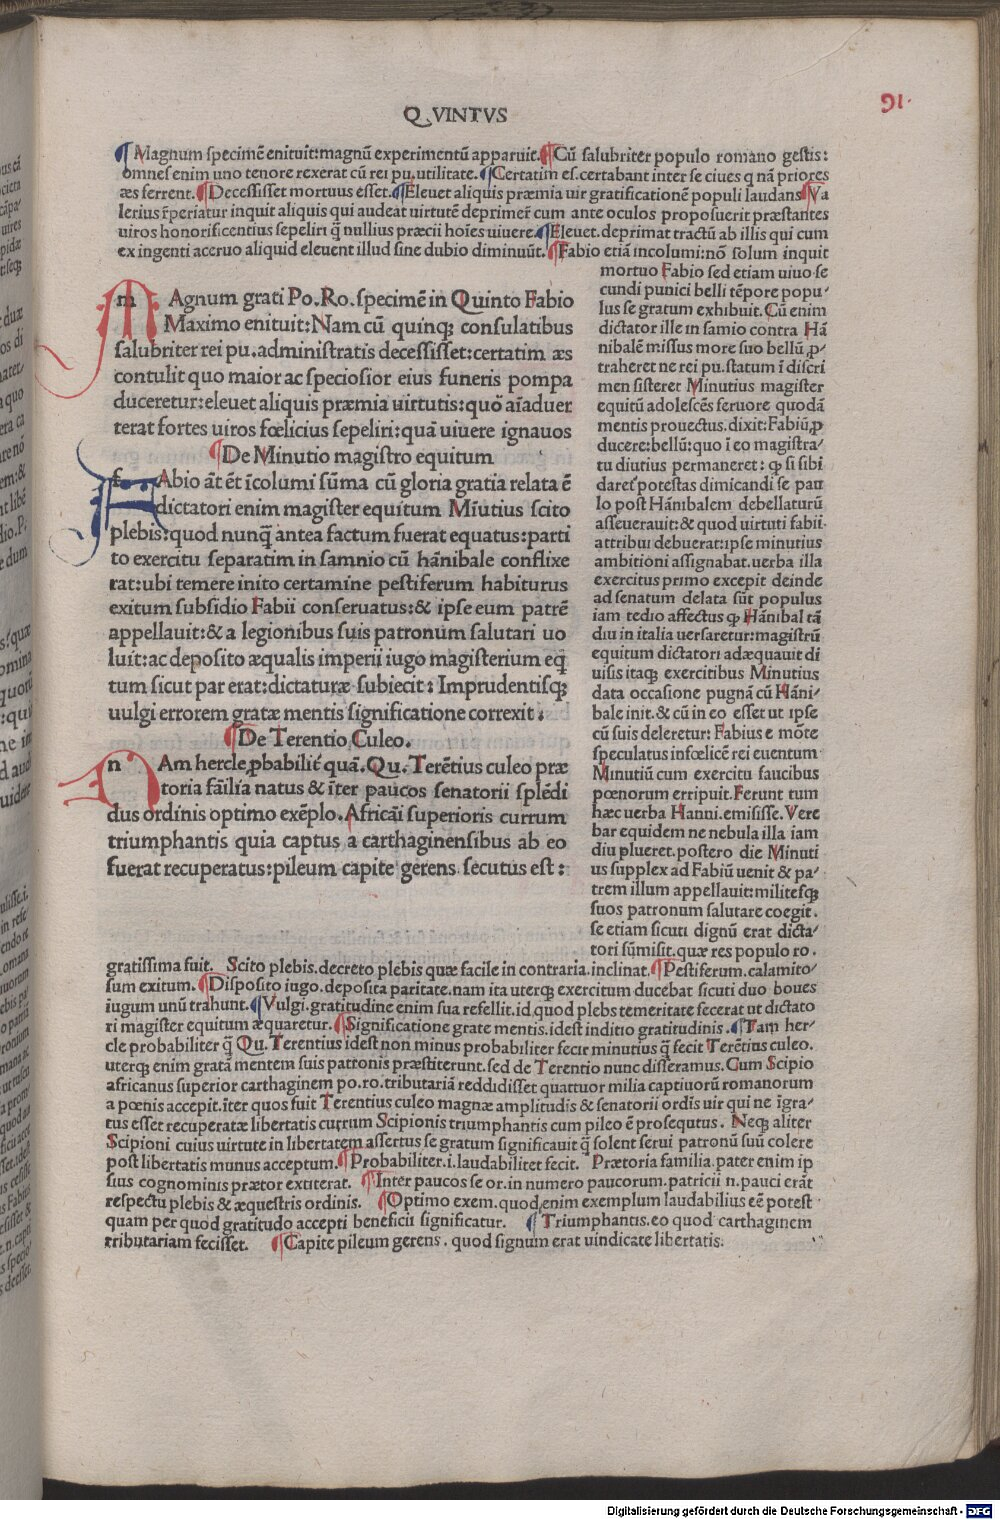 QVINTVS
91
¶Magnum specimē enituit:magnū experimentū apparuit.¶Cū salubriter populo romano gestis:
omnes enim uno tenore rexerat cū rei pu.utilitate.¶Certatim es.certabant inter se ciues q nā priores
æs ferrent.¶Decessisset mortuus esset.¶Eleuet aliquis præmia uir gratificationē populi laudans¶Va
lerius r̄periatur inquit aliquis qui audeat uirtutē deprimer̄ cum ante oculos proposuerit præstantes
uiros honorificentius sepeliri q̄ nullius præcii hoīes uiuere.¶Eleuet.deprimat tractū ab illis qui cum
ex ingenti aceruo aliquid eleuent illud sine dubio diminuūt.¶Fabio etiā incolumi:nō solum inquit
mortuo Fabio sed etiam uiuo se
cundi punici belli tēpore popu-
lus se gratum exhibuit.Cū enim
dictator ille in samio contra Hā
nibalē missus more suo bellū ꝓ-
traheret ne rei pu.statum ī discri
men sisteret Minutius magister
equitū adolescēs feruore quodā
mentis prouectus.dixit:Fabiū ꝓ
ducere:bellū:quo ī eo magistra-
tu diutius permaneret: ꝙ si sibi
daret̄ potestas dimicandi se pau
lo post Hānibalem debellaturū
asseuerauit:& quod uirtuti fabii.
attribui debuerat:ipse minutius
ambitioni assignabat.uerba illa
exercitus primo excepit deinde
ad senatum delata sūt populus
iam tedio affectus ꝙ Hānibal tā
diu in italia uersaretur:magistrū
equitum dictatori adæquauit di
uisis itaqꝫ exercitibus Minutius
data occasione pugnā cū Hāni-
bale init.& cū in eo esset ut ipse
cū suis deleretur: Fabius e mōte
speculatus infœlicē rei euentum
Minutiū cum exercitu faucibus
pœnorum erripuit.Ferunt tum
hæc uerba Hanni.emisisse.Vere
bar equidem ne nebula illa iam
diu plueret.postero die Minuti
us supplex ad Fabiū uenit & pa-
trem illum appellauit:militesqꝫ
suos patronum salutare coegit.
se etiam sicuti dignū erat dicta-
tori sūmisit.quæ res populo ro.
m Agnum grati Po.Ro.specimē in Quinto Fabio
Maximo enituit:Nam cū quinqꝫ consulatibus
salubriter rei pu.administratis decessisset:certatim æs
contulit quo maior ac speciosior eius funeris pompa
duceretur:eleuet aliquis præmia uirtutis:quō aīaduer
terat fortes uiros fœlicius sepeliri:quā uiuere ignauos
¶De Minutio magistro equitum
f Abio āt ēt īcolumi sūma cū gloria gratia relata ē
dictatori enim magister equitum Mīutius scito
plebis:quod nunq̄ antea factum fuerat equatus:parti
to exercitu separatim in samnio cū hānibale conflixe
rat:ubi temere inito certamine pestiferum habiturus
exitum subsidio Fabii conseruatus:& ipse eum patrē
appellauit:& a legionibus suis patronum salutari uo
luit:ac deposito æqualis imperii iugo magisterium eq̄
tum sicut par erat:dictaturæ subiecit: Imprudentisqꝫ
uulgi errorem gratæ mentis significatione correxit:
¶De Terentio Culeo.
n Am hercle ꝓbabilit̄ quā.Qu.Terētius culeo præ
toria fāīlīa natus & īter paucos senatorii splēdi
dus ordinis optimo exēplo.Africāī superioris currum
triumphantis quia captus a carthaginensibus ab eo
fuerat recuperatus:pileum capite gerens secutus est:
gratissima fuit. Scito plebis.decreto plebis quæ facile in contraria.inclinat.¶Pestiferum.calamito-
sum exitum.¶Disposito iugo.deposita paritate.nam ita uterqꝫ exercitum ducebat sicuti duo boues
iugum unū trahunt.¶Vulgi.gratitudine enim sua refellit.id.quod plebs temeritate fecerat ut dictato
ri magister equitum æquaretur.¶Significatione grate mentis.idest inditio gratitudinis.¶Tam her-
cle probabiliter q̄ Qu.Terentius idest non minus probabiliter fecit minutius q̄ fecit Terētius culeo.
uterqꝫ enim gratā mentem suis patronis præstiterunt.sed de Terentio nunc disseramus.Cum Scipio
africanus superior carthaginem po.ro.tributariā reddidisset quattuor milia captiuorū romanorum
a pœnis accepit.īter quos fuit Terentius culeo magnæ amplitudis & senatorii ordīs uir qui ne īgra-
tus esset recuperatæ libertatis currum Scipionis triumphantis cum pileo ē prosequtus. Neqꝫ aliter
Scipioni cuius uirtute in libertatem assertus se gratum significauit q̄ solent serui patronū suū colere
post libertatis munus acceptum.¶Probabiliter.i.laudabiliter fecit. Prætoria familia.pater enim ip
sius cognominis prætor extiterat. ¶Inter paucos se or.in numero paucorum.patricii n.pauci erāt
respectu plebis & æquestris ordinis. ¶Optimo exem.quod enim exemplum laudabilius eē potest
quam per quod gratitudo accepti beneficii significatur. ¶Triumphantis.eo quod carthaginem
tributariam fecisset. ¶Capite pileum gerens.quod signum erat uindicate libertatis:
Digitalisierung gefördert durch die Deutsche Forschungsgemeinschaft - DFG